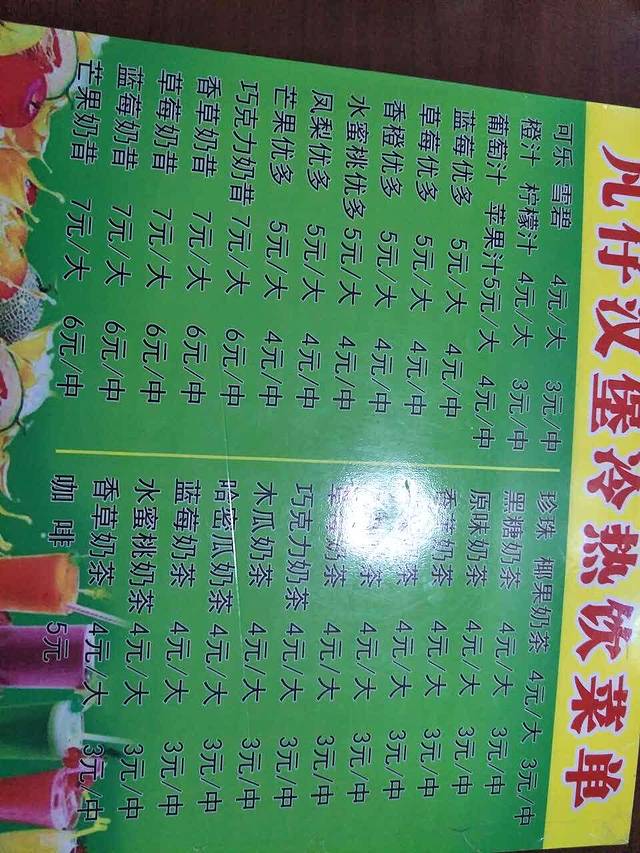 凡仔汉堡冷热饮菜单
可乐 雪碧 4元/大 3元/中
橙汁 柠檬汁 4元/大 3元/中
葡萄汁 苹果汁 5元/大 4元/中
蓝莓优多 5元/大 4元/中
草莓优多 5元/大 4元/中
香橙优多 5元/大 4元/中
水蜜桃优多 5元/大 4元/中
凤梨优多 5元/大 4元/中
芒果优多 5元/大 4元/中
巧克力奶昔 7元/大 6元/中
香草奶昔 7元/大 6元/中
草莓奶昔 7元/大 6元/中
蓝莓奶昔 7元/大 6元/中
芒果奶昔 7元/大 6元/中
珍珠 椰果奶茶 4元/大 3元/中
黑糖奶茶 4元/大 3元/中
原味奶茶 4元/大 3元/中
奶茶 4元/大 3元/中
茶 4元/大 3元/中
茶 4元/大 3元/中
奶茶 4元/大 3元/中
巧克力奶茶 4元/大 3元/中
木瓜奶茶 4元/大 3元/中
哈密瓜奶茶 4元/大 3元/中
蓝莓奶茶 4元/大 3元/中
水蜜桃奶茶 4元/大 3元/中
香草奶茶 4元/大 3元/中
咖啡 5元